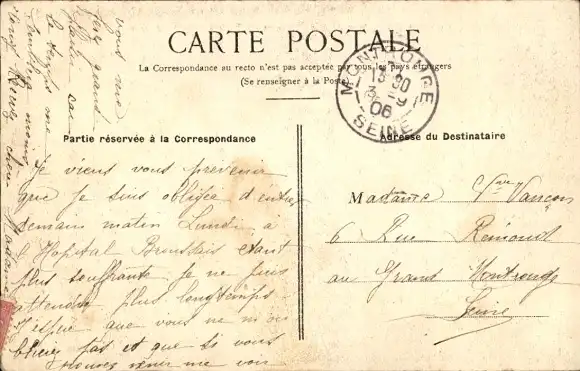 CARTE POSTALE
La Correspondance au recto n'est pas acceptée par tous les pays étrangers
(Se renseigner à la Poste)
MONTROUGE
15 30
3 - 9
06
SEINE
Partie réservée à la Correspondance
Adresse du Destinataire
Je viens vous prevenir
que je suis obligée d'entrer
demain matin Lundi à
l'Hopital Broussais etant
plus souffrante je ne puis
attendre plus longtemps
J'espere que vous ne m'ou
blierez pas et que si vous
pouvez venir me voir
vous me
ferez grand
plaisir car
le temps me
semblera moins
long
chère Madame
Madame Vve Vançon
6 Rue Remond
au Grand Montrouge
Seine